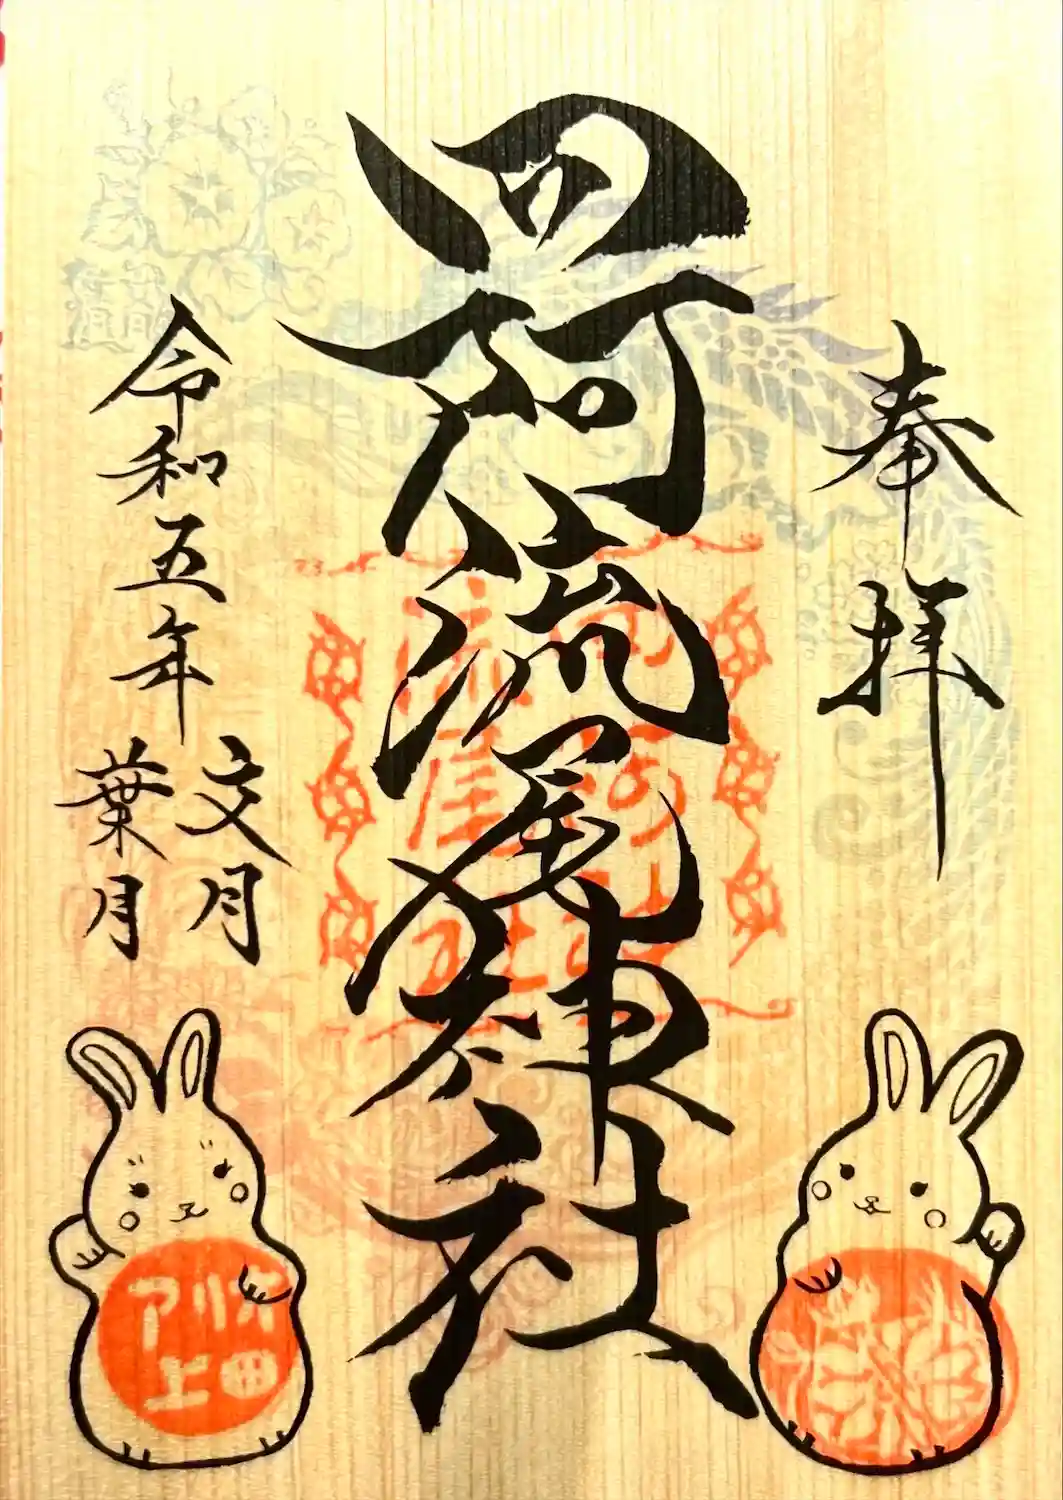 奉拝
四阿流尾神社
令和五年
文月
葉月
アリオ
上田